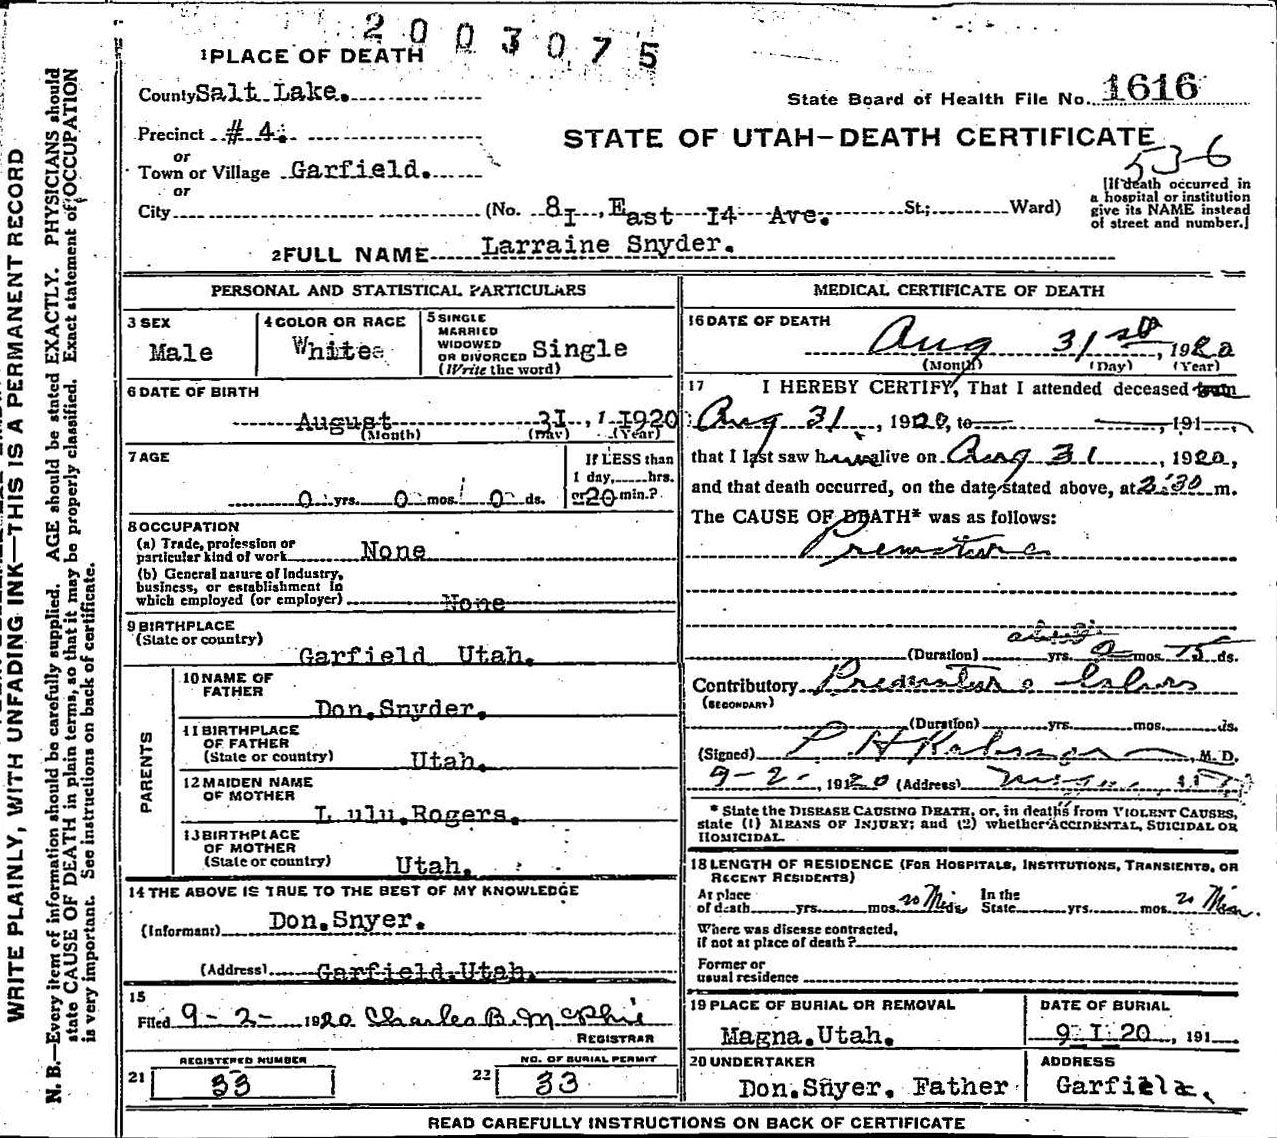 2003075
1 PLACE OF DEATH
County Salt Lake.
State Board of Health File No. 1616
Precinct #4.
STATE OF UTAH—DEATH CERTIFICATE
536
or
Town or Village Garfield.
or
City (No. 8I, East I4 Ave. St.; Ward)
[If death occurred in a hospital or institution give its NAME instead of street and number.]
2 FULL NAME Larraine Snyder.
PERSONAL AND STATISTICAL PARTICULARS
3 SEX
Male
4 COLOR OR RACE
White
5 SINGLE
MARRIED
WIDOWED
OR DIVORCED
(Write the word)
Single
6 DATE OF BIRTH
August 3I, 1920
(Month) (Day) (Year)
7 AGE
0 yrs. 0 mos. 0 ds.
If LESS than
1 day, hrs.
or 20 min.?
8 OCCUPATION
(a) Trade, profession or
particular kind of work None
(b) General nature of Industry,
business, or establishment in
which employed (or employer) None
9 BIRTHPLACE
(State or country)
Garfield Utah.
PARENTS
10 NAME OF
FATHER
Don.Snyder.
11 BIRTHPLACE
OF FATHER
(State or country) Utah.
12 MAIDEN NAME
OF MOTHER
Lulu.Rogers.
13 BIRTHPLACE
OF MOTHER
(State or country) Utah.
14 THE ABOVE IS TRUE TO THE BEST OF MY KNOWLEDGE
(Informant) Don.Snyer.
(Address) Garfield.Utah.
15
Filed 9-2- 1920 Charles B. McPhie
REGISTRAR
REGISTERED NUMBER
21 33
NO. OF BURIAL PERMIT
22 33
MEDICAL CERTIFICATE OF DEATH
16 DATE OF DEATH
Aug 31st, 1920
(Month) (Day) (Year)
17 I HEREBY CERTIFY, That I attended deceased from
Aug 31, 1920, to , 191
that I last saw him alive on Aug 31, 1920,
and that death occurred, on the date stated above, at 2:30 m.
The CAUSE OF DEATH* was as follows:
Premature
(Duration) yrs. mos. 15 ds.
Contributory Premature Labor
(SECONDARY)
(Duration) yrs. mos. ds.
(Signed) P H M. D.
9-2-, 1920 (Address)
* State the DISEASE CAUSING DEATH, or, in deaths from VIOLENT CAUSES,
state (1) MEANS OF INJURY; and (2) whether ACCIDENTAL, SUICIDAL OR
HOMICIDAL.
18 LENGTH OF RESIDENCE (FOR HOSPITALS, INSTITUTIONS, TRANSIENTS, OR
RECENT RESIDENTS)
At place In the
of death yrs. mos. 20 Min ds. State yrs. mos. 20 Min.
Where was disease contracted,
if not at place of death?
Former or
usual residence
19 PLACE OF BURIAL OR REMOVAL
Magna.Utah.
DATE OF BURIAL
9 I 20, 191
20 UNDERTAKER
Don.Snyer. Father
ADDRESS
Garfield.
READ CAREFULLY INSTRUCTIONS ON BACK OF CERTIFICATE
WRITE PLAINLY, WITH UNFADING INK—THIS IS A PERMANENT RECORD
N. B.—Every item of information should be carefully supplied. AGE should be stated EXACTLY. PHYSICIANS should
state CAUSE OF DEATH in plain terms, so that it may be properly classified. Exact statement of OCCUPATION
is very important. See instructions on back of certificate.